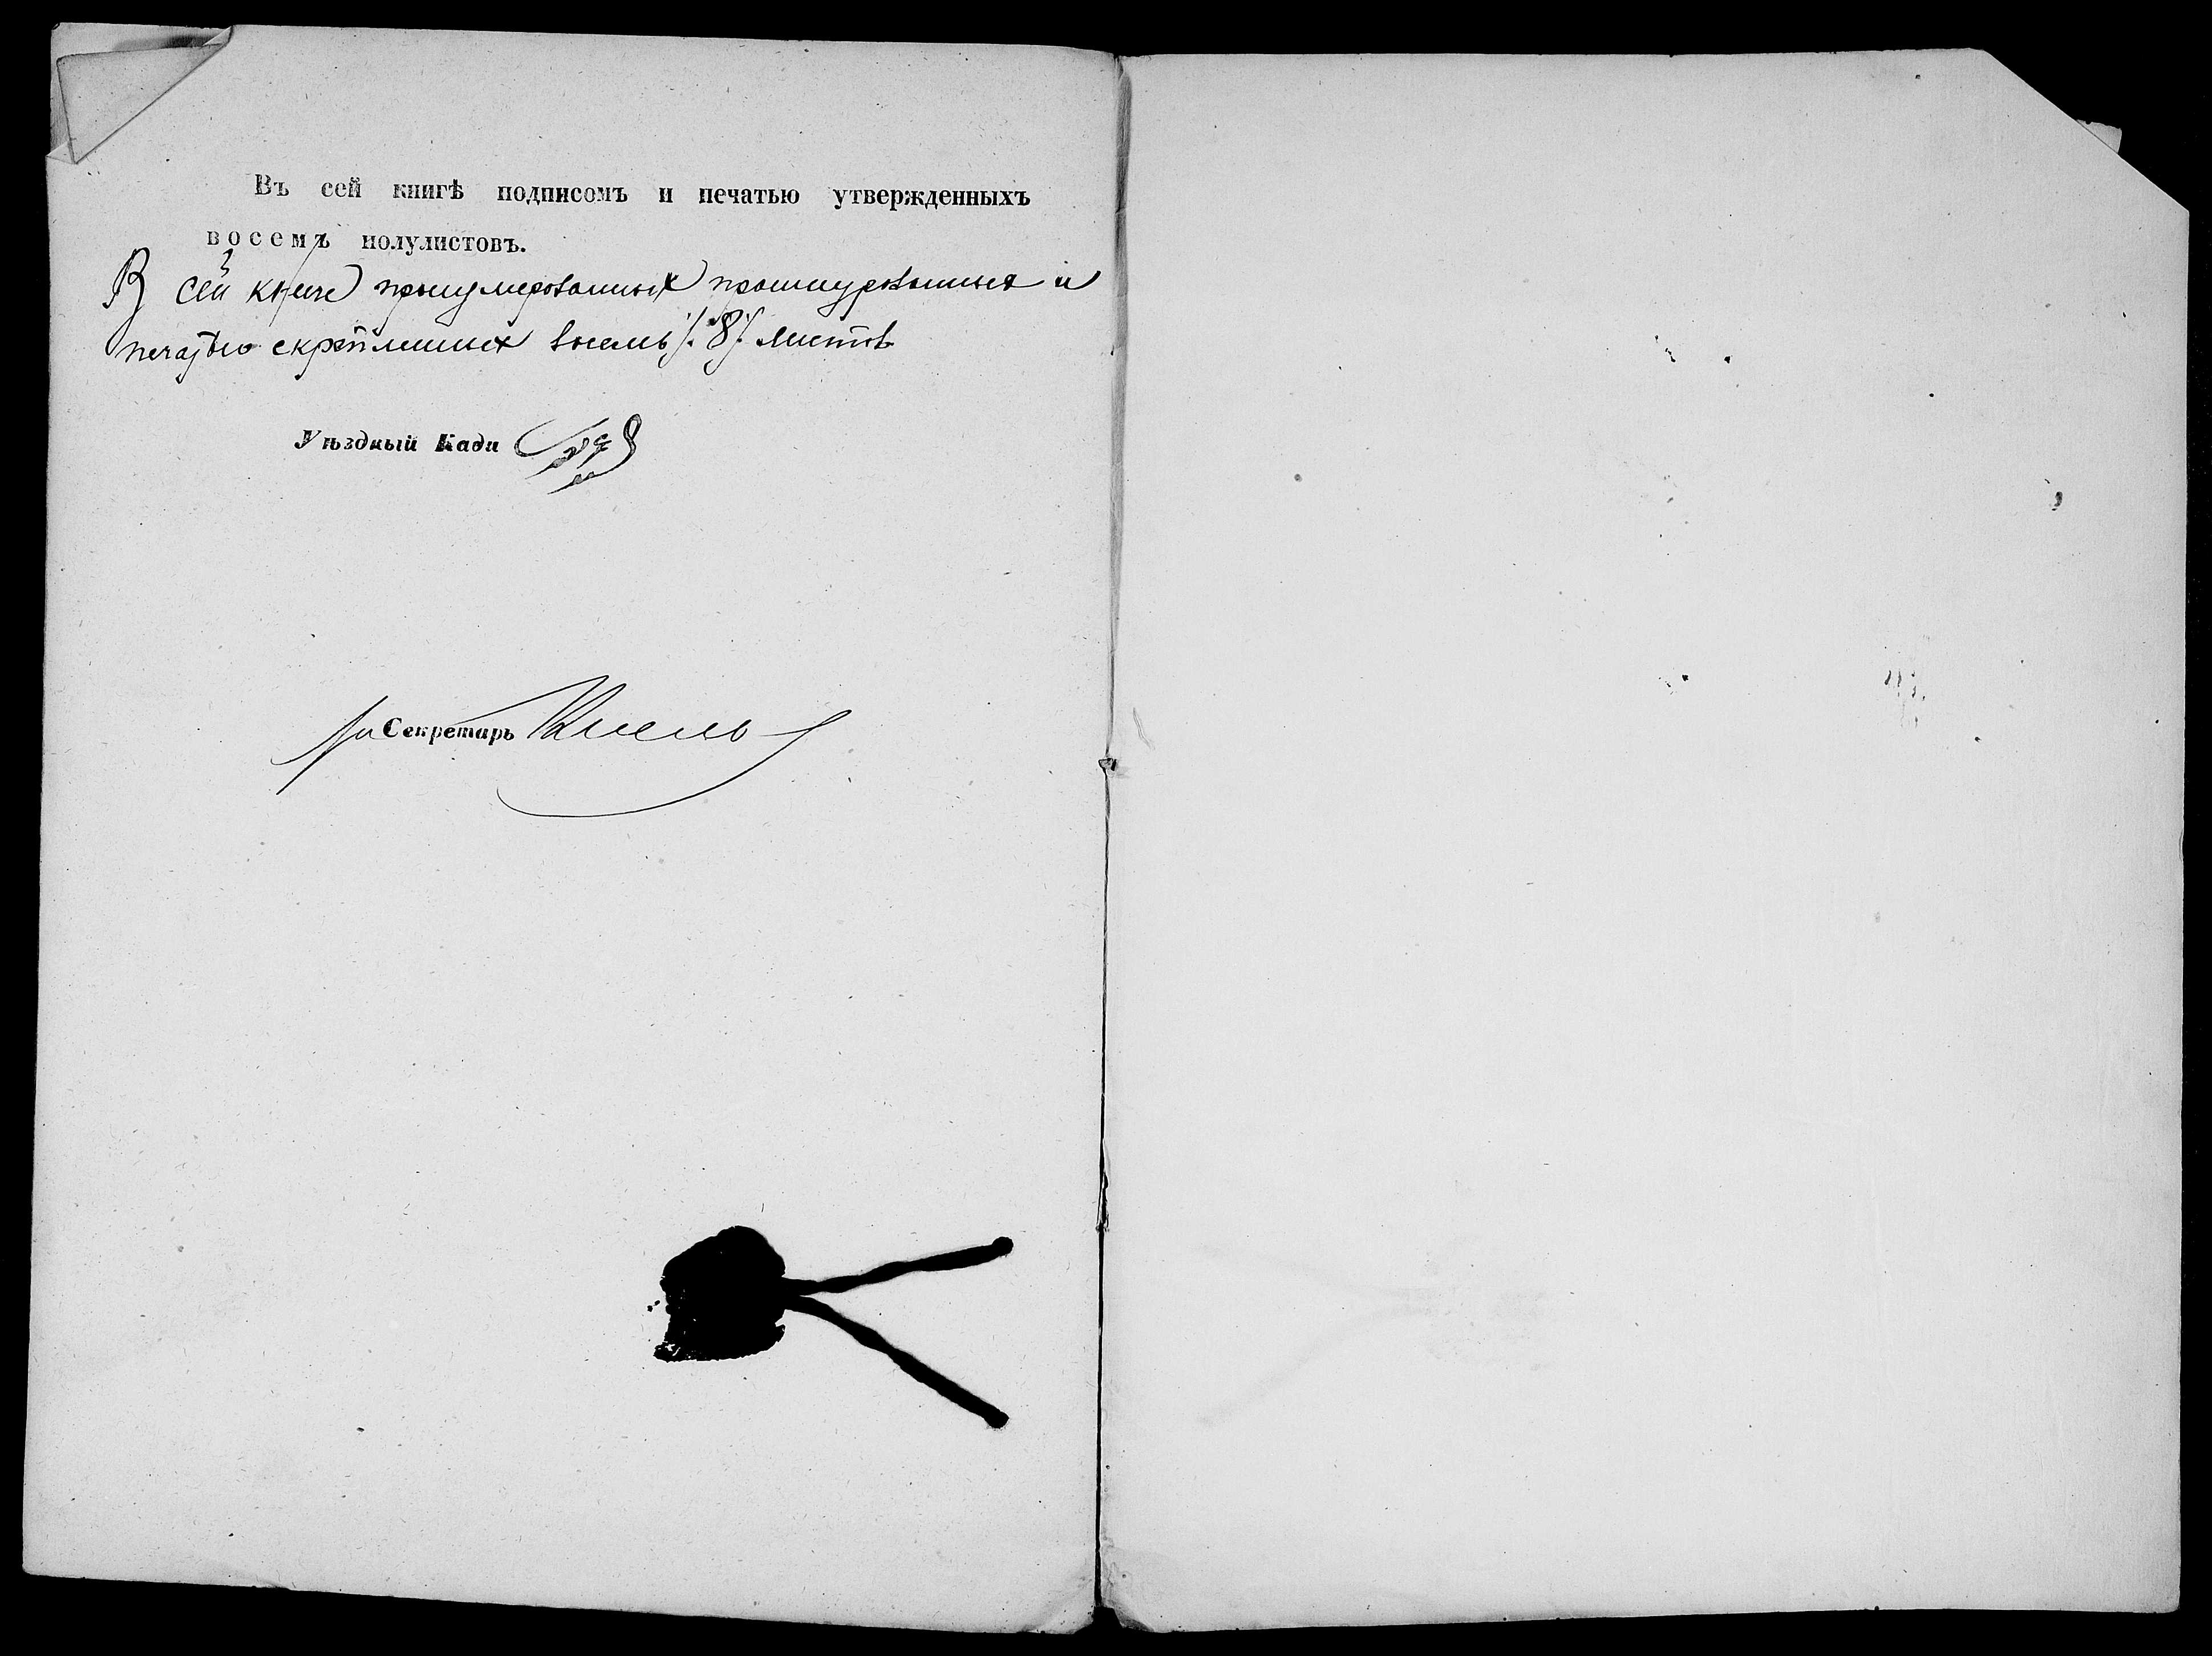 Въ сей книгѣ подписомъ и печатью утвержденныхъ
восемъ полулистовъ.
В сей книге пронумерованных прошнурованных и
печатью скрепленных восемь /. 8 /. листов
Уѣздный Кади
Секретарь